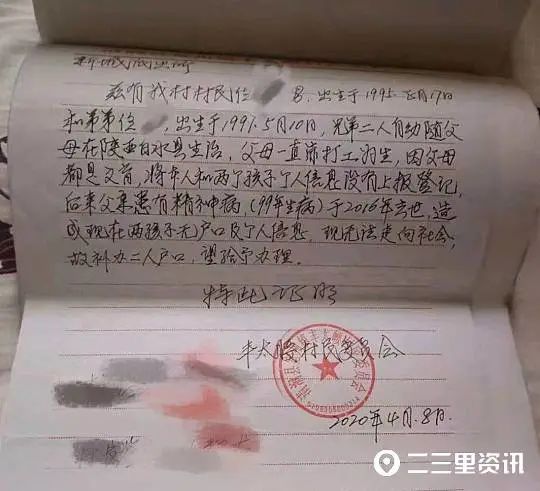 新城派出所
兹有我村村民任 男,出生于1995.5月17日
和弟弟任 ,出生于1991.5月10日,兄弟二人自幼随父
母在陕西白水县生活,父母一直靠打工为生,因父母
都是文盲,将本人和两个孩子个人信息没有上报登记,
后来父亲患有精神病,(99年生病)于2016年去世,造
成现在两孩子无户口及个人信息,现无法走向社会,
故补办二人户口,望给予办理。
特此证明
半太腰村民委员会
2020年4月8日.
二三里资讯